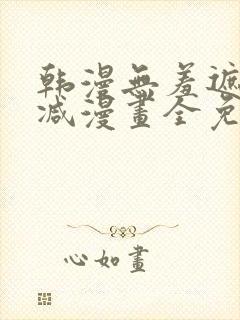 韩漫無羞遮
减漫畫全免
心如畫